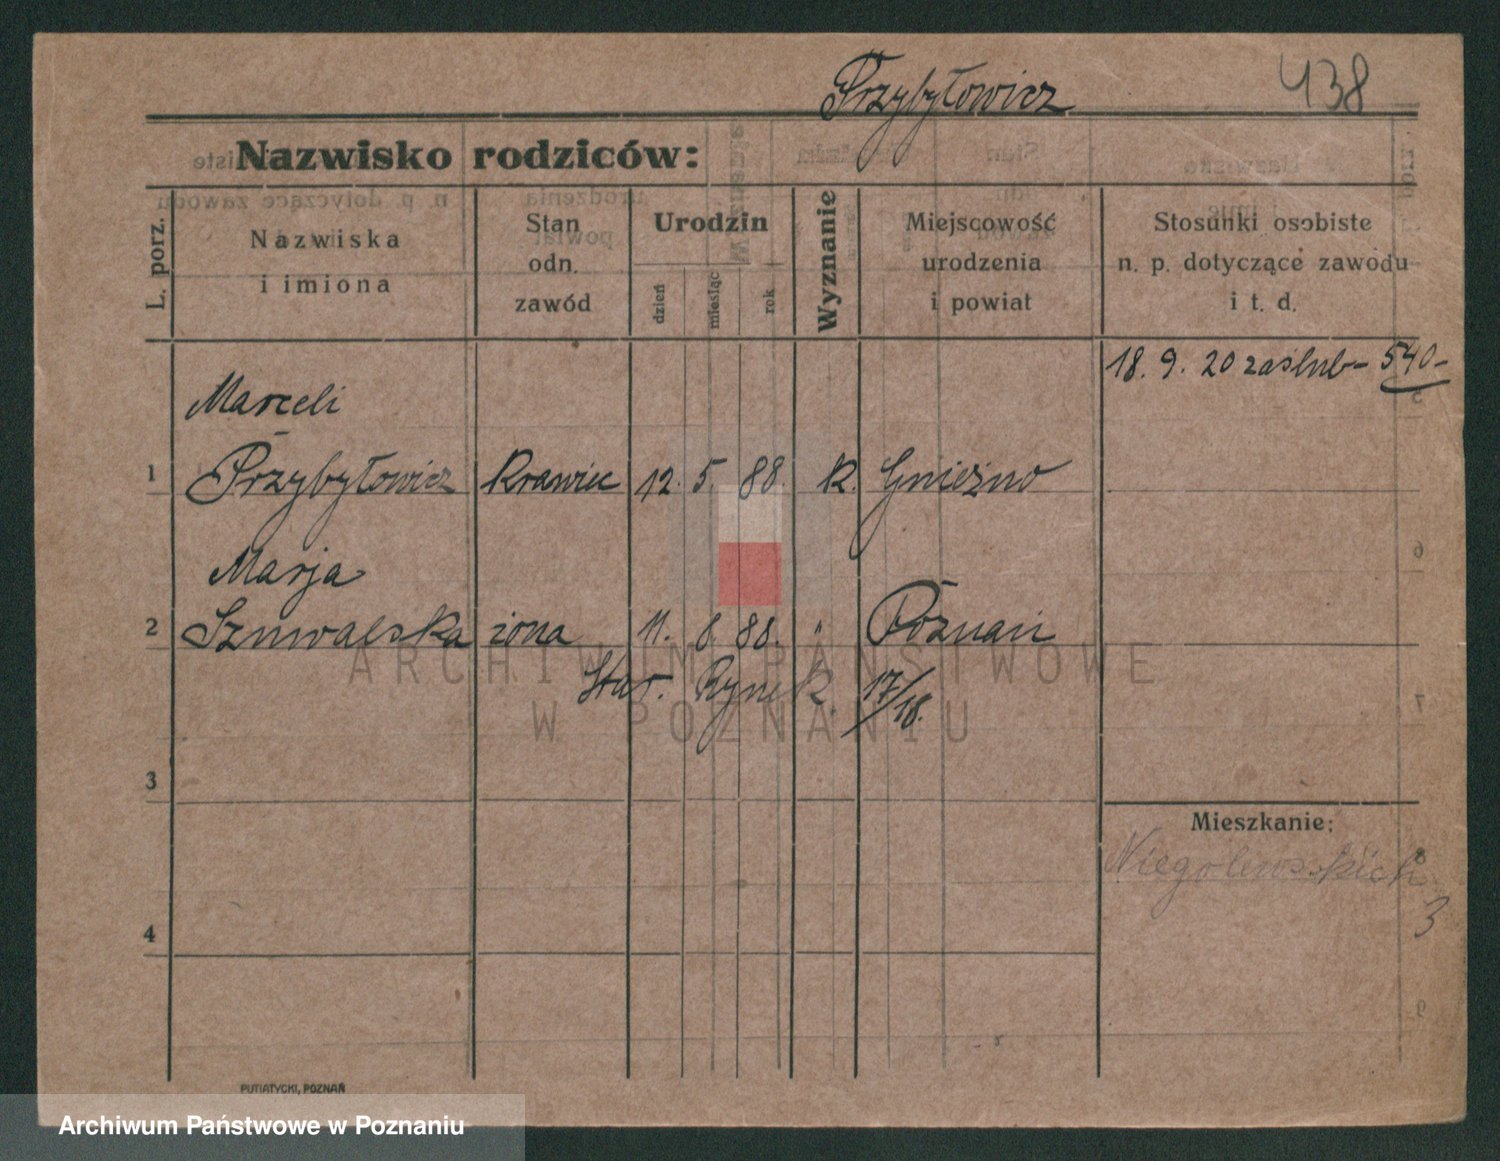 Przybyłowicz 438
Nazwisko rodziców:
L. porz.
Nazwiska
i imiona
Stan
odn.
zawód
Urodzin
dzień
miesiąc
rok
Wyznanie
Miejscowość
urodzenia
i powiat
Stosunki osobiste
n. p. dotyczące zawodu
i t. d.
18. 9. 20 zaślub- 540-
Marceli
1 Przybyłowicz Krawiec 12. 5. 88. K. Gniezno
Marja
2 żona 11. 8. 88. " Poznań
Star. Rynek 17/18.
ARCHIWUM PAŃSTWOWE
W POZNANIU
3
Mieszkanie:
Niegolewskich
3
4
PUTIATYCKI, POZNAŃ
Archiwum Państwowe w Poznaniu